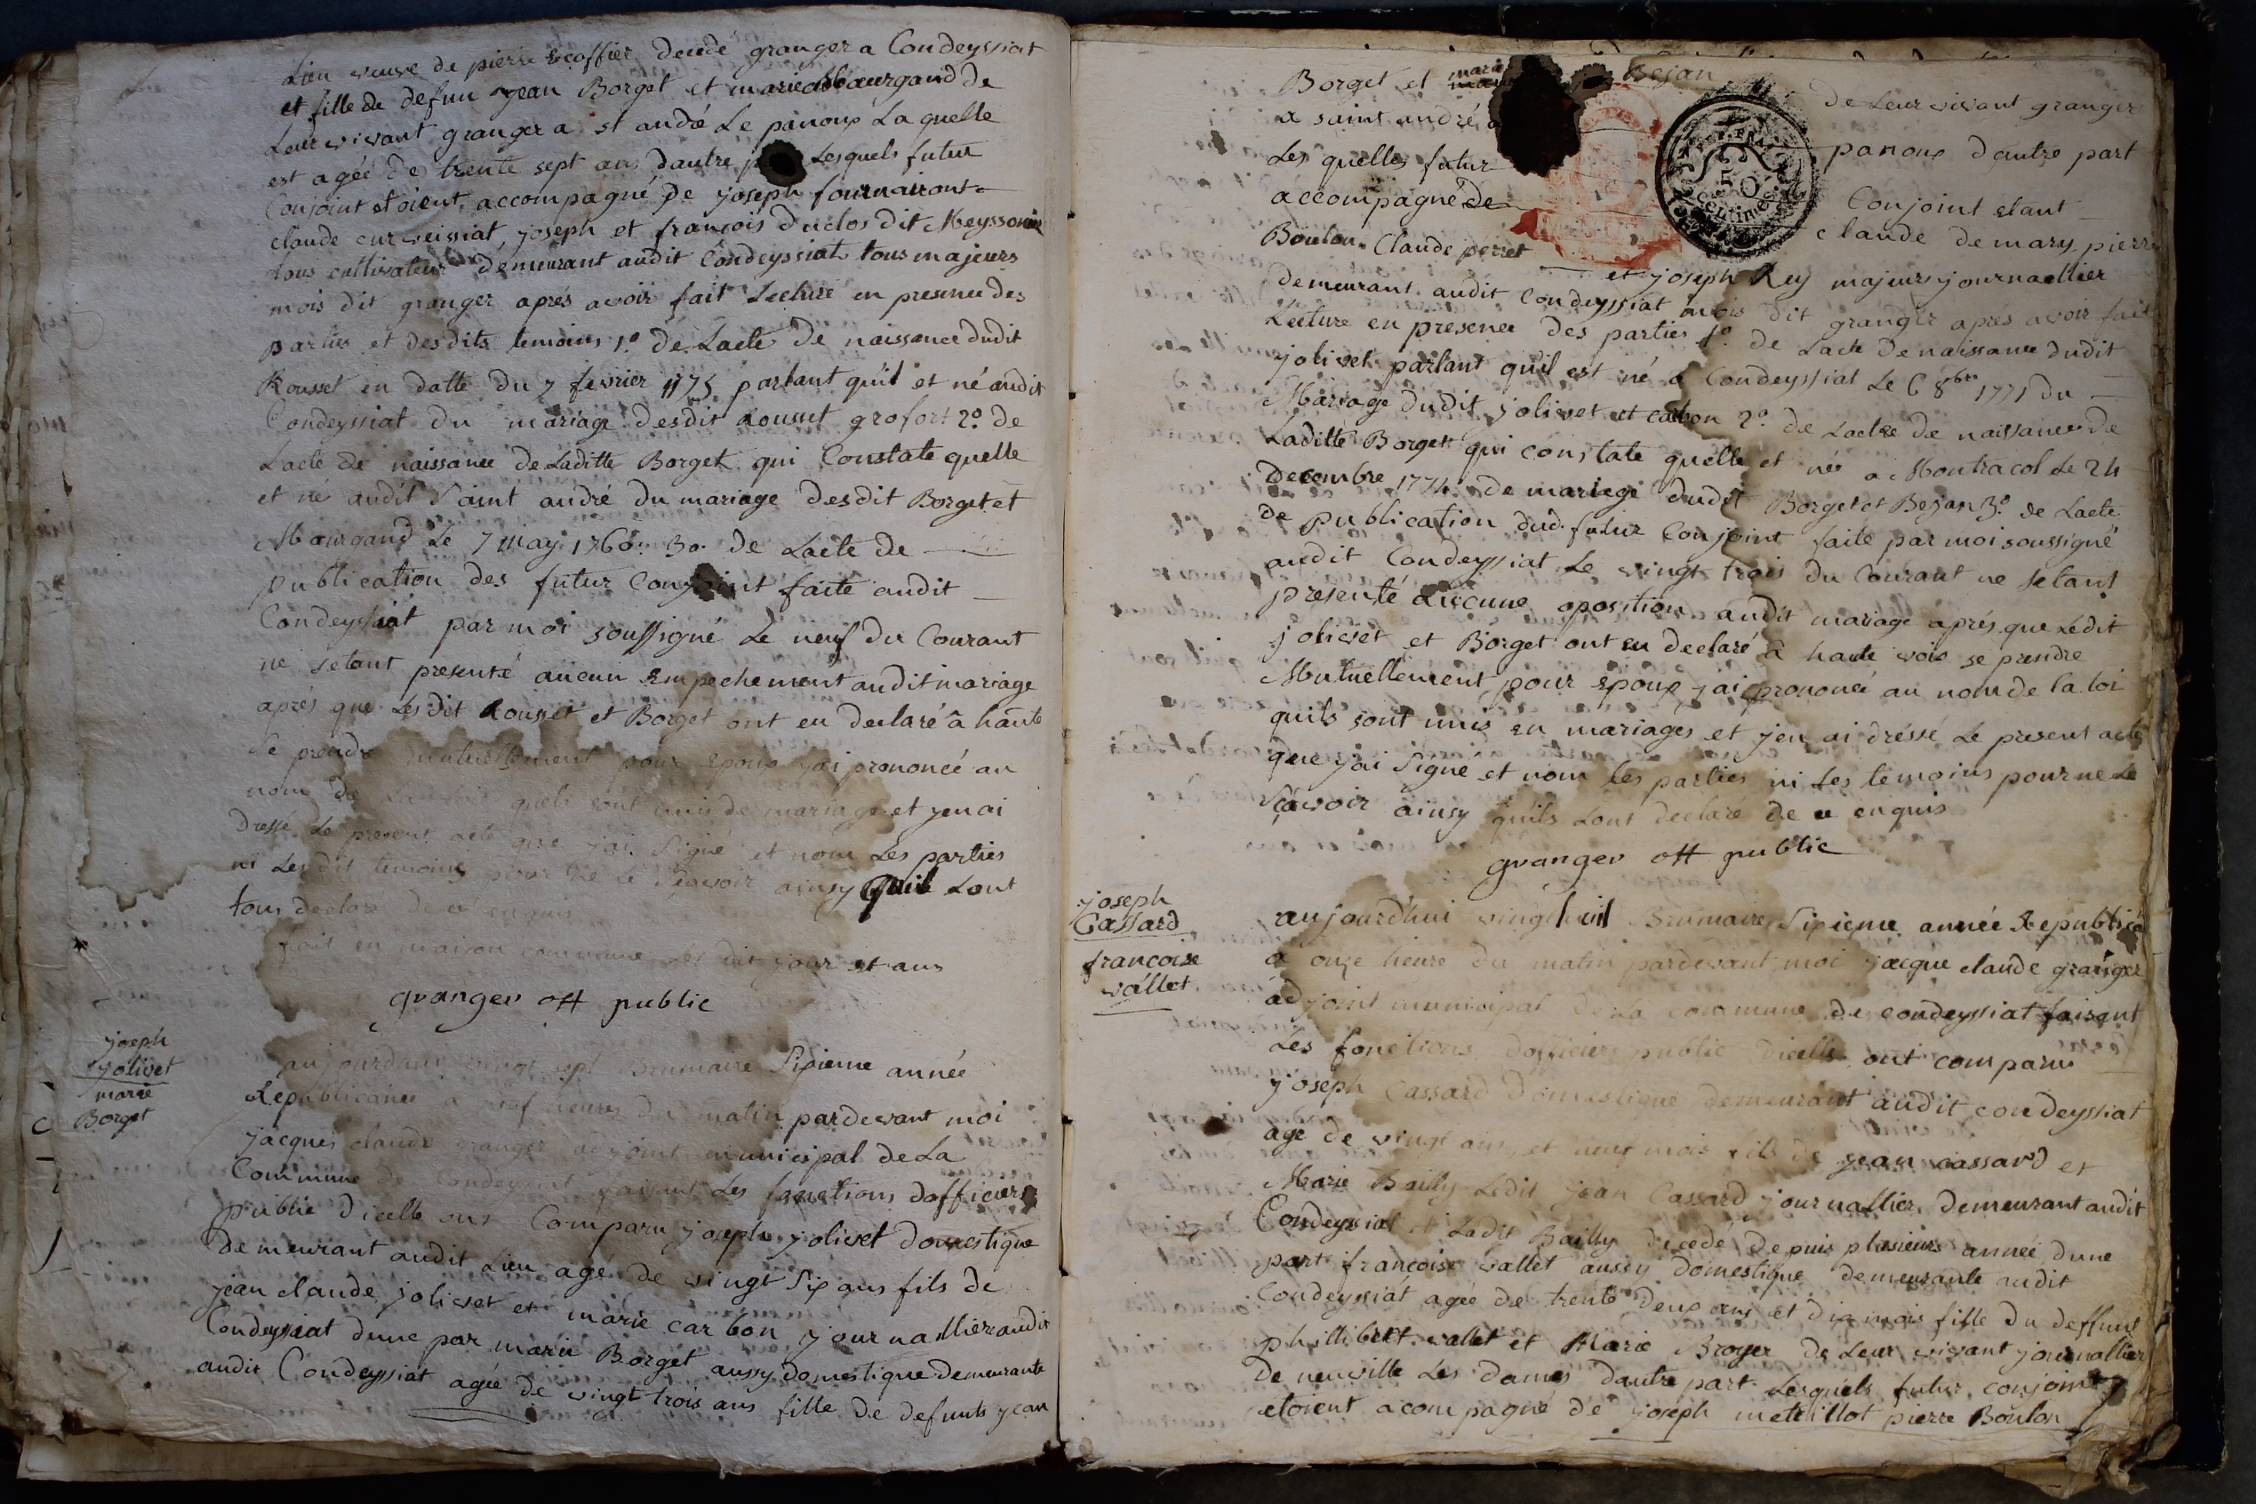 Lieu veuve de pierre Ecoffier decedé granger a Condeyssiat
et fille de defun jean Borget et marie Mourgaud de
Leur vivant granger a st andré Le panoux La quelle
est agéé de trente sept ans dautre Lesquels futur
Conjoint etoient accompagné de joseph
claude curveissiat, joseph et françois duclos dit Meyssonier
tous cultivateur demeurant audit Condeyssiat tous majeurs
mois dit granger aprés avoir fait Lecture en presence des
parties et desdits temoins 1o. de Lacte de naissance dudit
Rousset en datte du 7 fevrier 1775 partant quil et né audit
Condeyssiat du mariage desdit rousset grofort 2o. de
Lacte de naissance de Laditte Borget qui Constate quelle
et né audit Saint andré du mariage desdit Borget et
Mourgaud Le 7 may 1760. 3o. de Lacte de
publication des futur Conjoint faite audit
Condeyssiat par moi soussigné Le neuf du Courant
ne setant presenté aucun Empechement audit mariage
aprés que Lesdit Rousset et Borget ont eu declaré a haute
se prendre mutuellement pour Epoux jai prononcé au
nom de quils sont unis de mariage et jen ai
Dressé Le present acte que jai Signé et nom Les parties
ni Lesdit temoins pour ne Le Scavoir ainsy quils Lont
tous declaré de ce enquis
fait en maison commune Les dit jour et ans
granger off public
joseph
jolivet
marie
Borget
aujourdhui vingt sept Brumaire Sixieme année
Republicaine a neuf heures du matin pardevant moi
jacques claude granger adjoint municipal de La
Commune de Condeyssiat faisant Les fonctions dofficiers
public dicelle ont Comparu joseph jolivet domestique
demeurant audit Lieu agé de vingt Six ans fils de
jean claude jolivet et marie carbon journallier audit
Condeyssiat dune par marie Borget aussy domestique demeurante
audit Condeyssiat agée de vingt trois ans fille de defunts jean
Borget et marie Bejan de Leur vivant granger
a saint andré panoux dautre part
Les quelles futur Conjoint etant
accompagné de claude demary pierre
Boulon Claude perret et joseph Rey majeurs journallier
demeurant audit Condeyssiat mois dit granger apres avoir fait
Lecture en presence des parties 1o. de Lacte de naissance dudit
jolivet partant quil est né a Condeyssiat Le 6 8bre 1771 du
Mariage dudit jolivet et carbon 2o de Lactee de naissance de
Laditte Borget qui constate quelle et née a Montracol Le 24
decembre 1774 de mariage dudit Borget et Bejan 3o de Lacte
de publication dud. futur Conjoint faite par moi soussigné
audit Condeyssiat Le vingt trois du Courant ne setant
presenté aucune oposition audit mariage aprés que Ledit
jolivet et Borget ont eu declaré a haute voix se prendre
Mutuellement pour Epoux jai prononcé au nom de la loi
quils sont unis en mariages et jen ai dréssé Le present acte
que jai Signé et nom Les parties ni Les temoins pour ne Le
Scavoir ainsy quils Lont declaré de ce enquis
granger off public
joseph
Cassard
francoise
vallet
aujourdhui vingt huit Brumaire Sixieme année Republica
a onze heure du matin pardevant moi jacque claude granger
adjoint municipal de La commune de condeyssiat faisant
Les fonctions dofficiers public dicelle ont comparu
joseph Cassard Domestique demeurant audit condeyssiat
age de vingt ans et neuf mois fils de jean cassard et
Marie Bailly Ledit jean Cassard journallier demeurant audit
Condeyssiat et Ladit Bailly decedé depuis plusieurs année dune
part francoise vallet aussy domestique demeurante audit
Condeyssiat agée de trente deux ans et dix mois fille du deffunt
phillibert vallet et Marie Broyer de Leur vivant journallier
de neuville Les dames dautre part Lesquels futur conjoint
etoient acompagné de joseph meteillot pierre Boulon